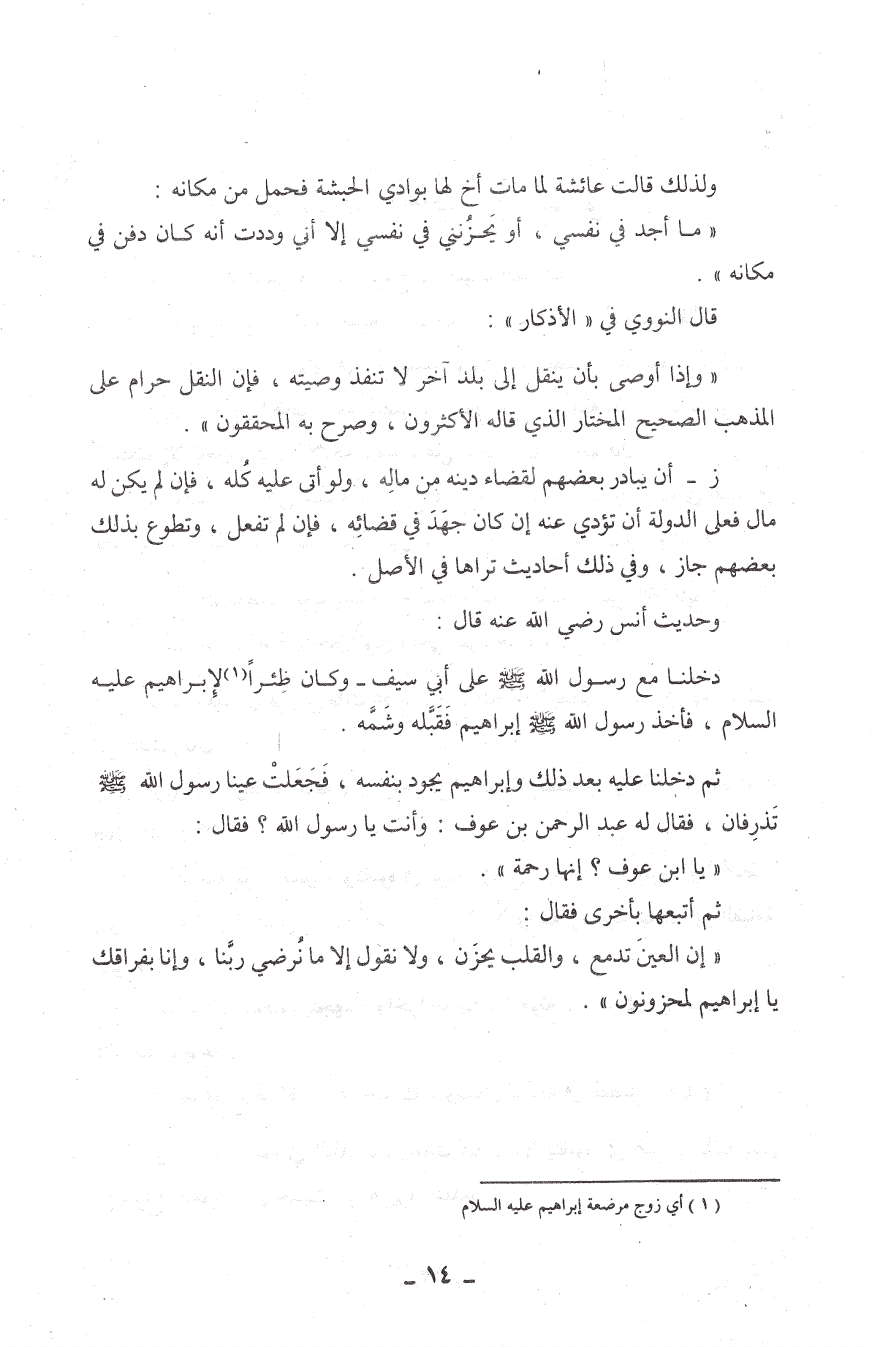 ولذلك قالت عائشة لما مات أخ لها بوادي الحبشة فحمل من مكانه :
« ما أجد في نفسي ، أو يَحزُنني في نفسي إلا أني وددت أنه كان دفن في
مكانه » .
قال النووي في « الأذكار » :
« وإذا أوصى بأن ينقل إلى بلد آخر لا تنفذ وصيته ، فإن النقل حرام على
المذهب الصحيح المختار الذي قاله الأكثرون ، وصرح به المحققون » .
ز - أن يبادر بعضهم لقضاء دينه من مالِه ، ولو أتى عليه كُله ، فإن لم يكن له
مال فعلى الدولة أن تؤدي عنه إن كان جهَدَ في قضائِه ، فإن لم تفعل ، وتطوع بذلك
بعضهم جاز ، وفي ذلك أحاديث تراها في الأصل .
وحديث أنس رضي الله عنه قال :
دخلنا مع رسول الله ﷺ على أبي سيف - وكان ظِئراً(١) لإبراهيم عليه
السلام ، فأخذ رسول الله ﷺ إبراهيم فَقَبَّله وشَمَّه .
ثم دخلنا عليه بعد ذلك وإبراهيم يجود بنفسه ، فَجَعَلتْ عينا رسول الله ﷺ
تَذرِفان ، فقال له عبد الرحمن بن عوف : وأنت يا رسول الله ؟ فقال :
« يا ابن عوف ؟ إنها رحمة » .
ثم أتبعها بأخرى فقال :
« إن العينَ تدمع ، والقلب يحزَن ، ولا نقول إلا ما نُرضي ربَّنا ، وإنا بفراقك
يا إبراهيم لمحزونون » .
( ١ ) أي زوج مرضعة إبراهيم عليه السلام
- ١٤ -